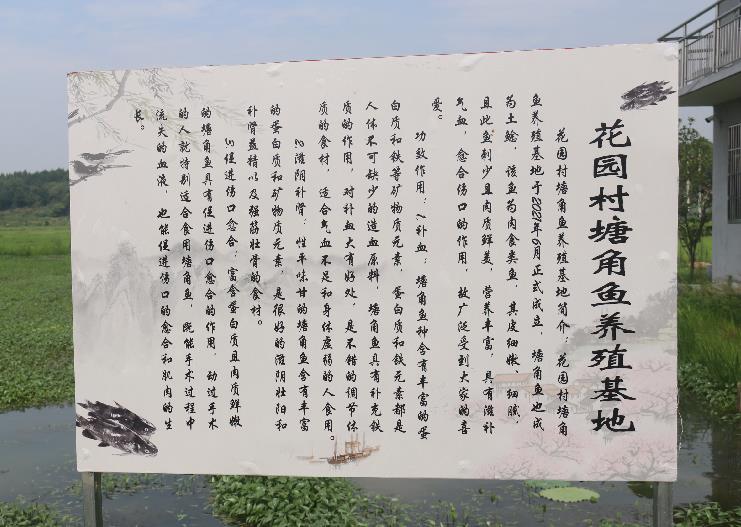 花园村塘角鱼养殖基地
花园村塘角鱼养殖基地简介：花园村塘角
鱼养殖基地于2021年6月正式成立，塘角鱼也成
为土鲶，该鱼为肉食类鱼，其皮细嫩、细腻
且此鱼刺少且肉质鲜美，营养丰富，具有滋补
气血，愈合伤口的作用，故广泛受到大家的喜
爱。
功效作用：1补血：塘角鱼种含有丰富的蛋
白质和铁等矿物质元素，蛋白质和铁元素都是
人体不可缺少的造血原料，塘角鱼具有补充铁
质的作用，对补血大有好处，是不错的调节体
质的食材，适合气血不足和身体虚弱的人食用。
2滋阴补肾：性平味甘的塘角鱼含有丰富
的蛋白质和矿物质元素，是很好的滋阴壮阳和
补肾益精以及强筋壮骨的食材。
3促进伤口愈合：富含蛋白质且肉质鲜嫩
的塘角鱼具有促进伤口愈合的作用，动过手术
的人就特别适合食用塘角鱼，既能手术过程中
流失的血液，也能促进伤口的愈合和肌肉的生
长。